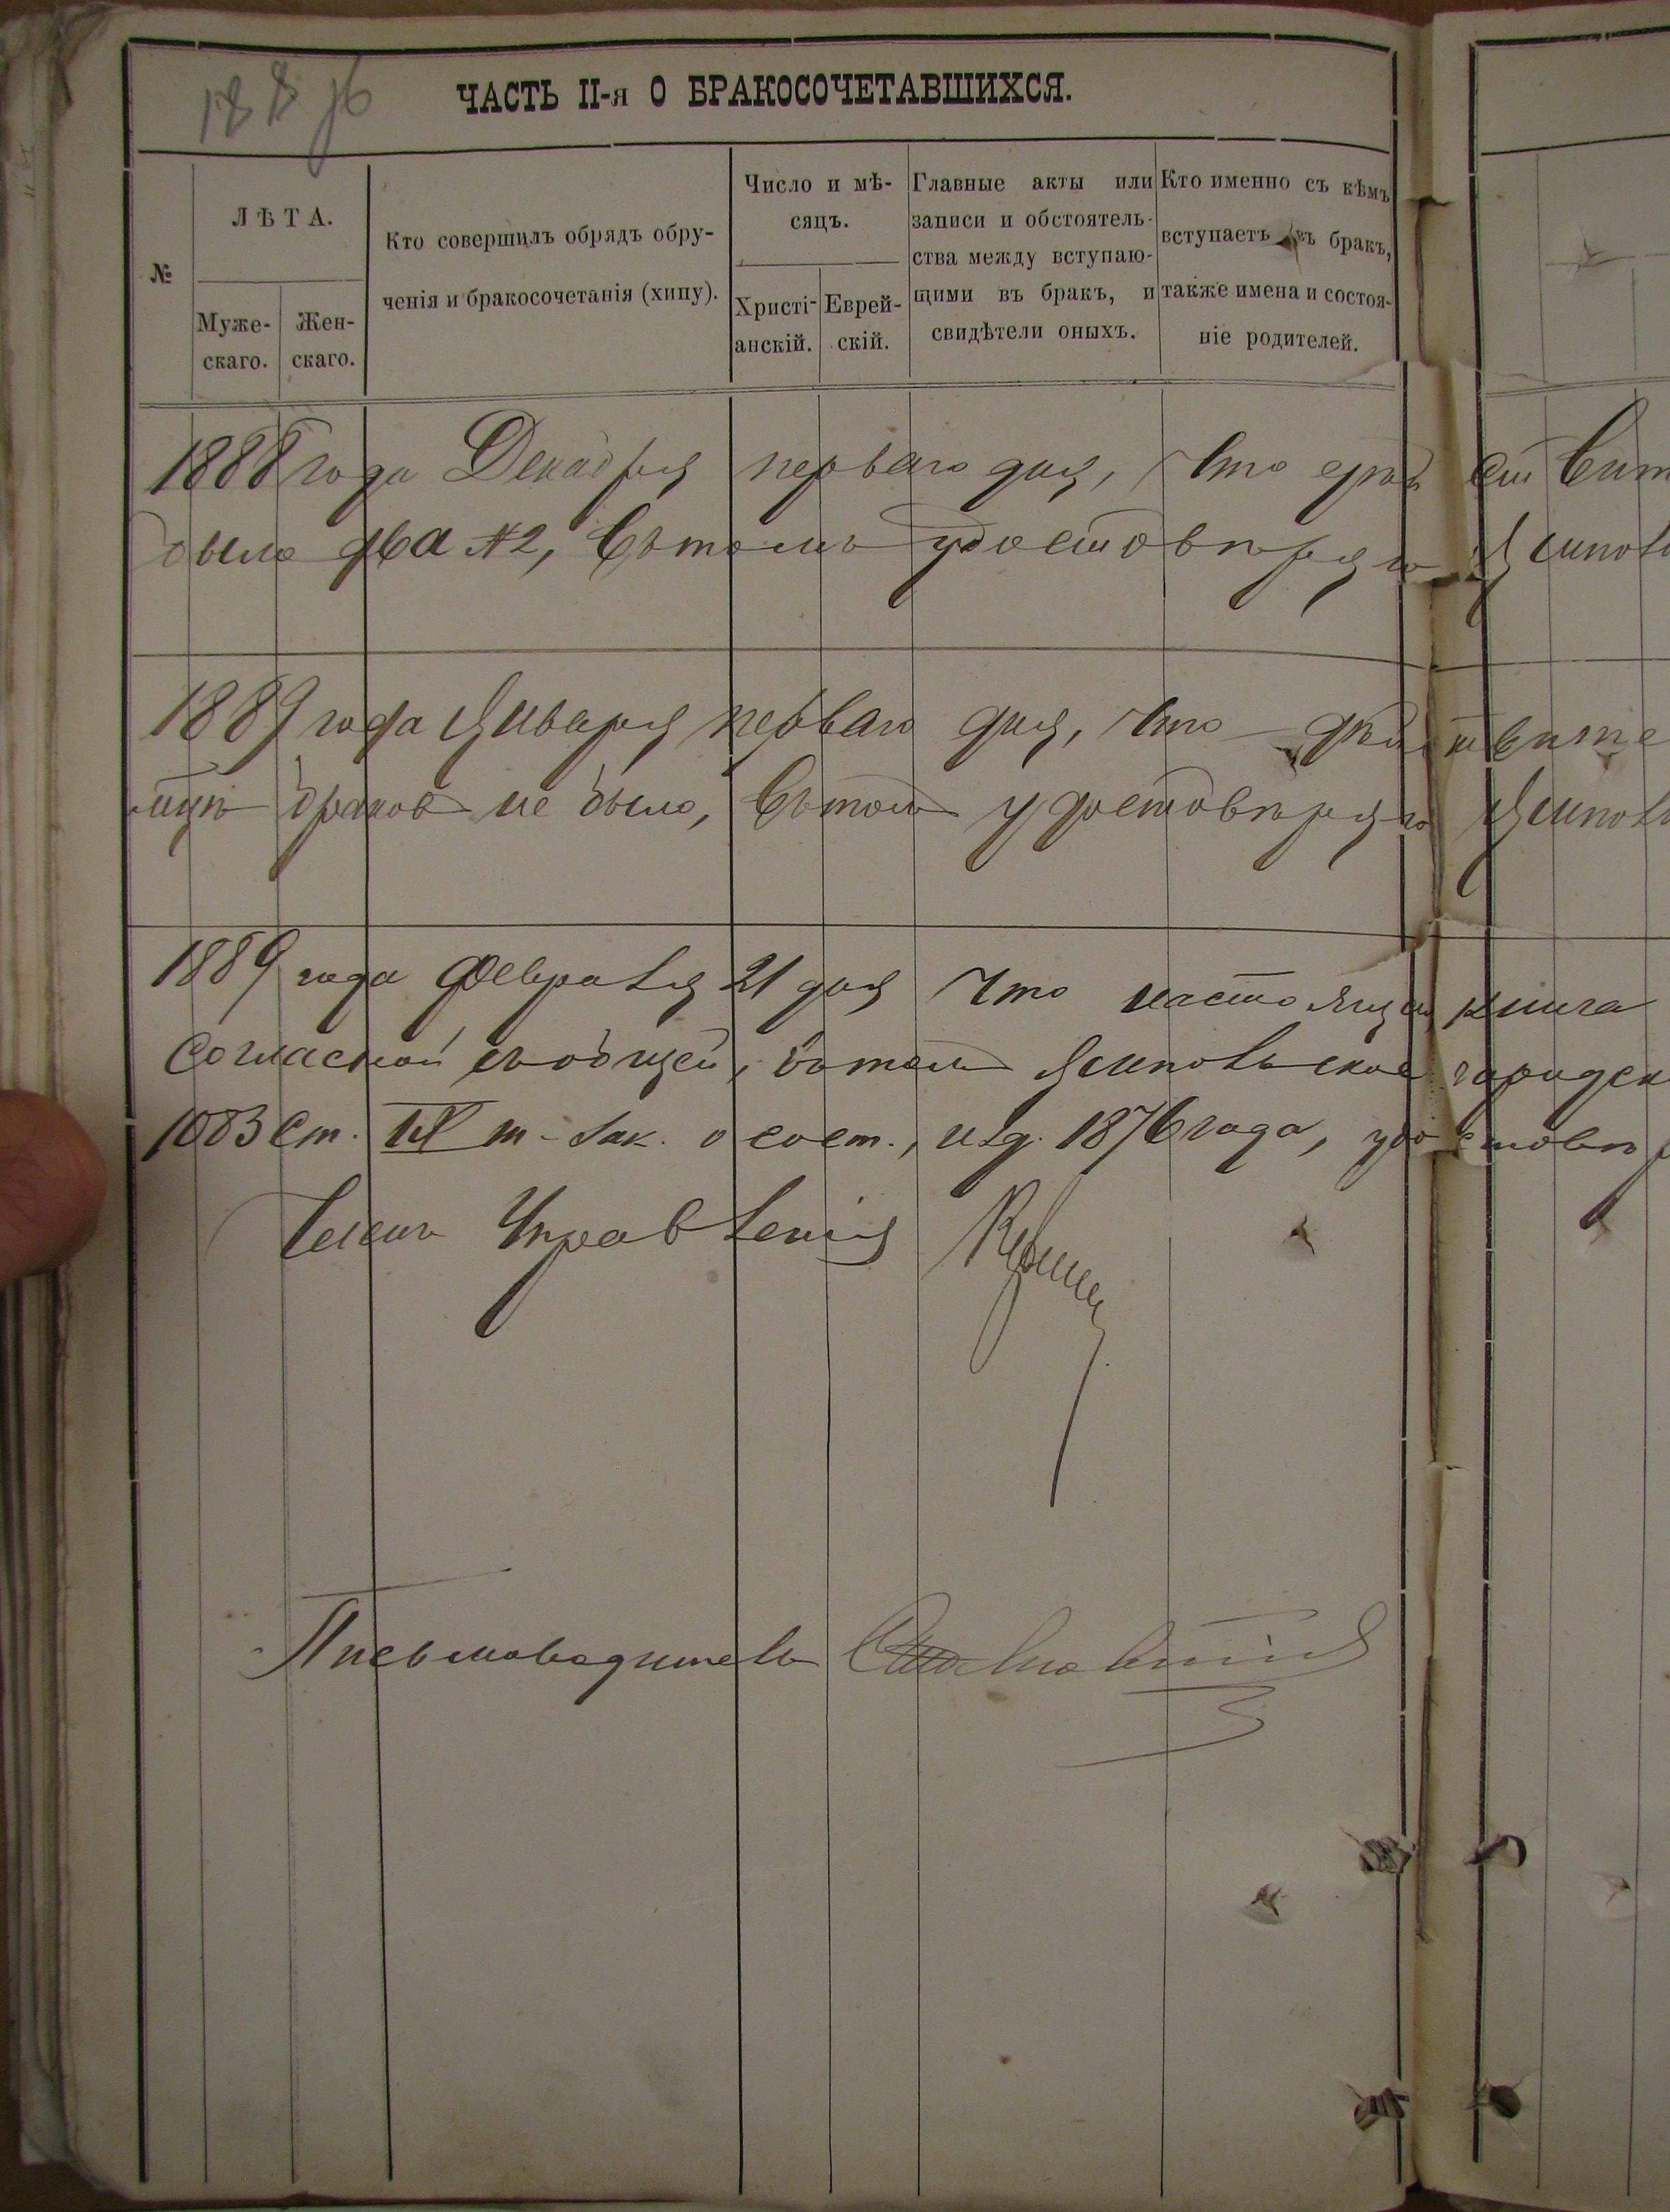 188
ЧАСТЬ II-я О БРАКОСОЧЕТАВШИХСЯ.
№
ЛѢТА.
Муже-
скаго.
Жен-
скаго.
Кто совершилъ обрядъ обру-
ченія и бракосочетанія (хипу).
Число и мѣ-
сяцъ.
Христі-
анскій.
Еврей-
скій.
Главные акты или
записи и обстоятель-
ства между вступаю-
щими въ бракъ, и
свидѣтели оныхъ.
Кто именно съ кѣмъ
вступаетъ въ бракъ,
также имена и состоя-
ніе родителей.
1888 года Декабря перваго дня, что
было два №2, Въ томъ удостовѣряю
1889 года Января перваго дня, что
браковъ не было, Въ томъ удостовѣряю
1889 года Февраля 21 дня Что настоящая книга
Согласной въ томъ
1083 Ст. IX т. Зак. о сост., изд. 1876 года,
Членъ Управленія
Письмоводитель